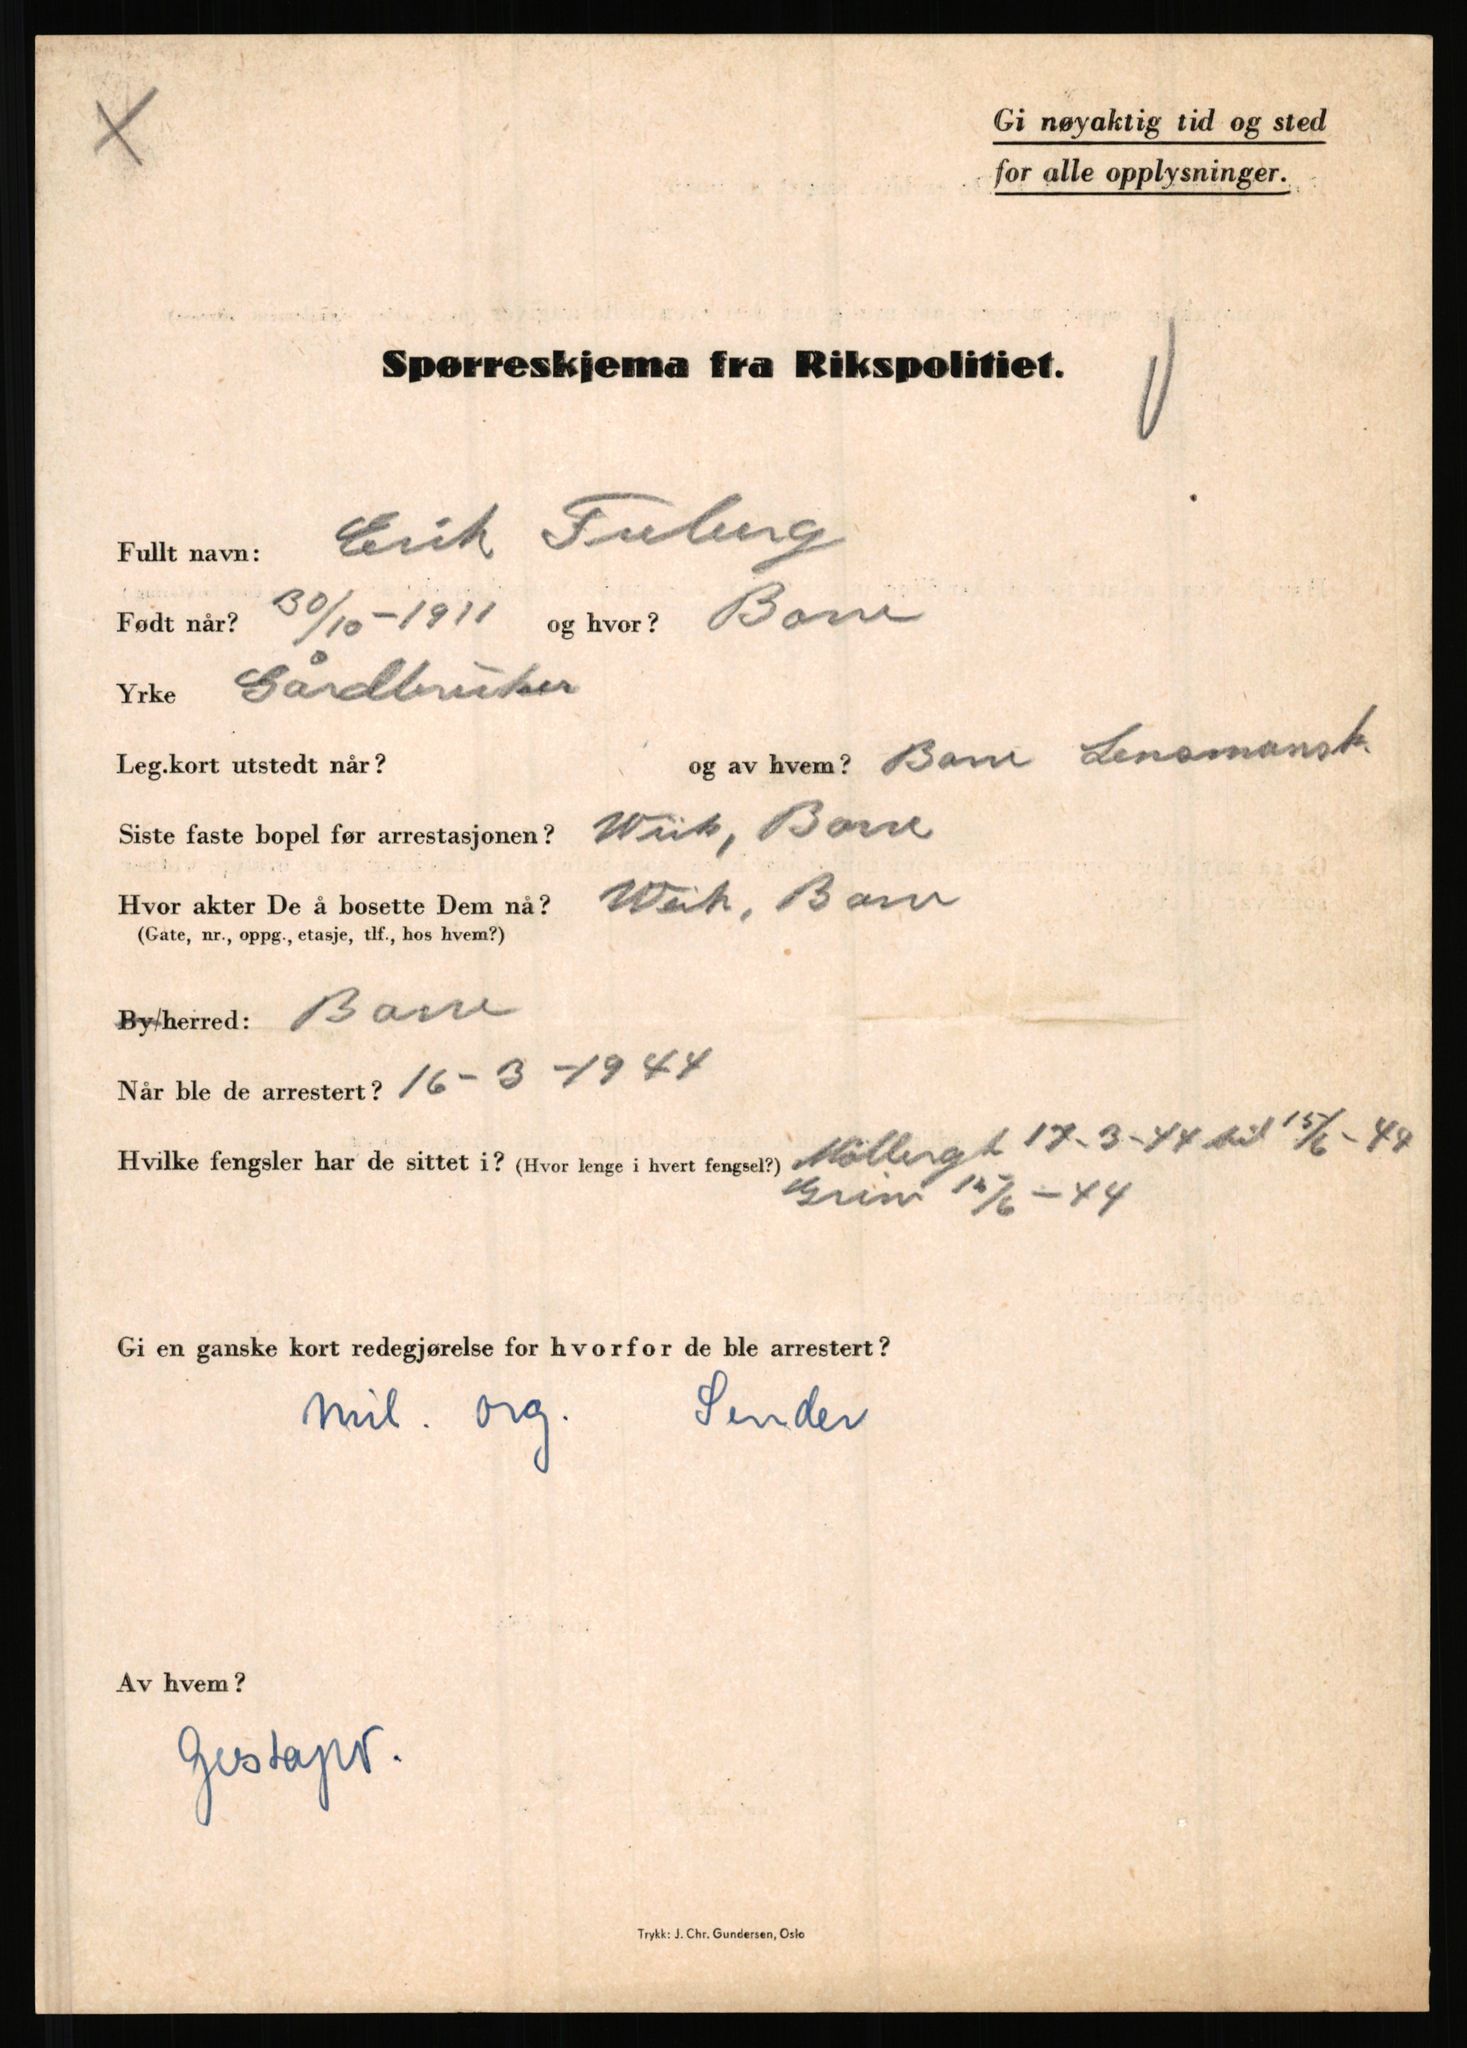 Gi nøyaktig tid og sted
for alle opplysninger.
Spørreskjema fra Rikspolitiet.
Fullt navn: Erik Freberg
Født når? 30/10-1911 og hvor? Borre
Yrke Gårdbruker
Leg.kort utstedt når? og av hvem? Borre Lensmansk.
Siste faste bopel før arrestasjonen? Wiik, Borre
Hvor akter De å bosette Dem nå? Wiik, Borre
(Gate, nr., oppg., etasje, tlf., hos hvem?)
By/herred: Borre
Når ble de arrestert? 16-3-1944
Hvilke fengsler har de sittet i? (Hvor lenge i hvert fengsel?) Møllergt 17-3-44 til 15/6-44
Grini 15/6-44
Gi en ganske kort redegjørelse for hvorfor de ble arrestert?
Mil. org. Sender
Av hvem?
Gestapo.
Trykk: J. Chr. Gundersen, Oslo